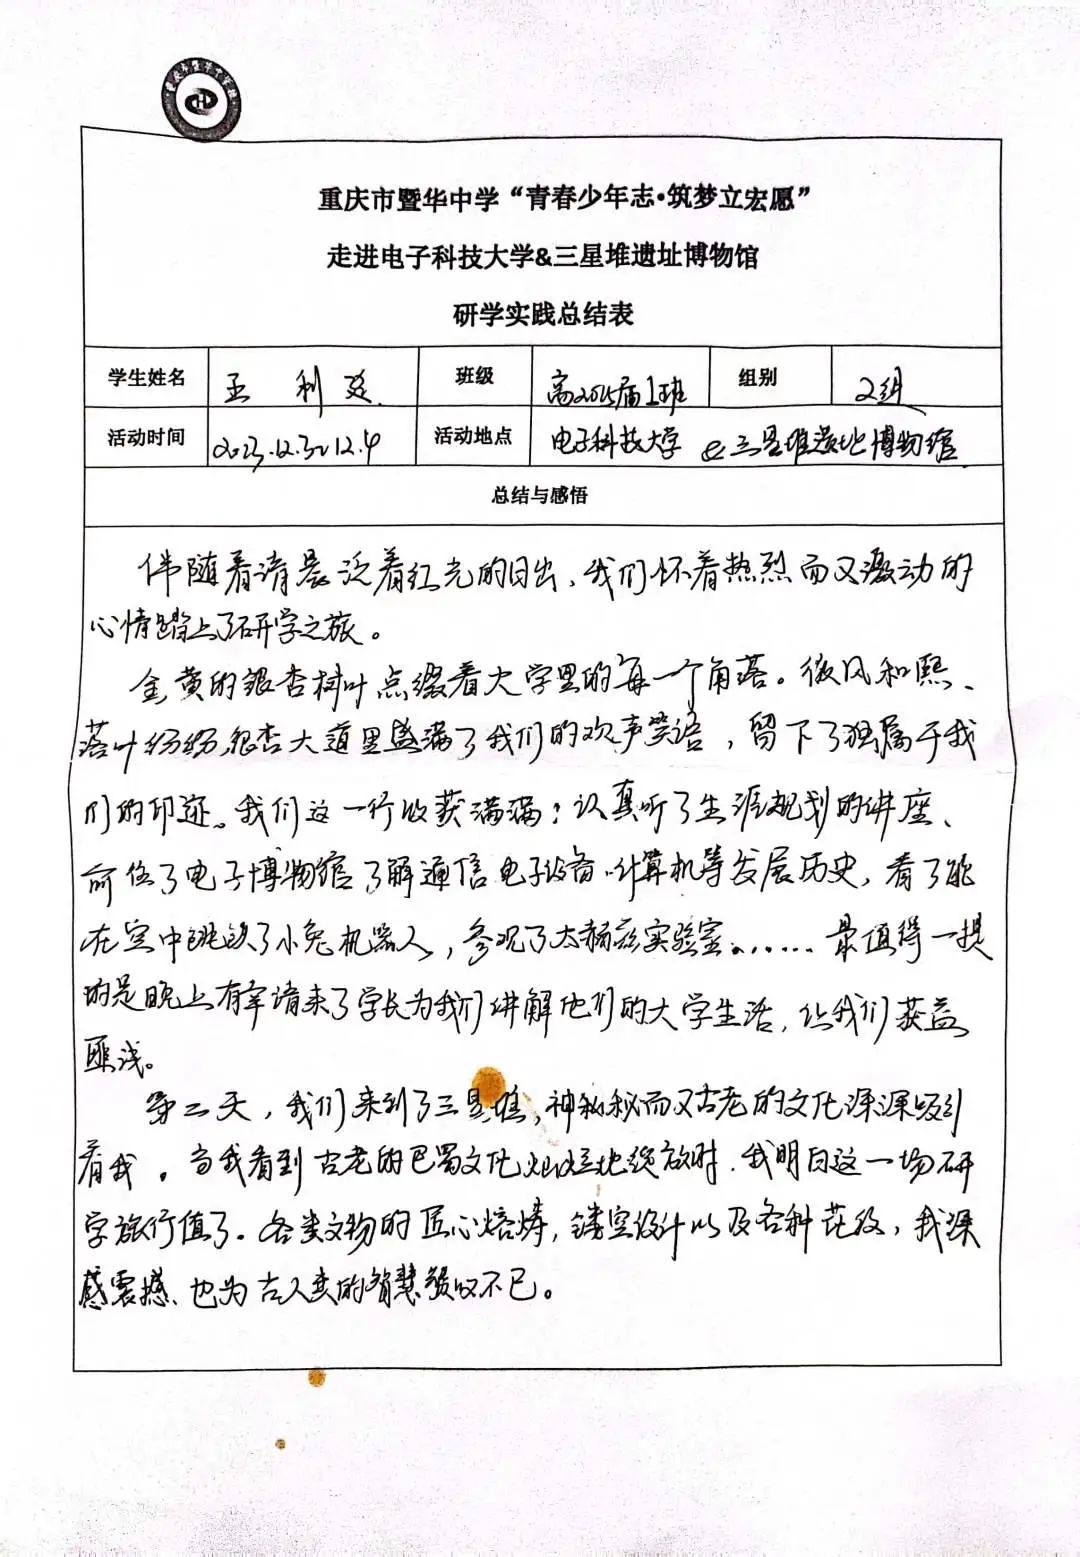 重庆市暨华中学“青春少年志·筑梦立宏愿”
走进电子科技大学&三星堆遗址博物馆
研学实践总结表
学生姓名 王利廷 班级 高2025届1班 组别 2组
活动时间 2023.12.3~12.4 活动地点 电子科技大学 & 三星堆遗址博物馆
总结与感悟
伴随着清晨泛着红光的日出，我们怀着热烈而又激动的
心情踏上了研学之旅。
金黄的银杏树叶点缀着大学里的每一个角落。微风和熙、
落叶纷纷，银杏大道里盛满了我们的欢声笑语，留下了独属于我
们的印迹。我们这一行收获满满：认真听了生涯规划的讲座、
前往了电子博物馆了解通信电子设备、计算机等发展历史，看了能
在空中跳跃了小兔机器人，参观了太赫兹实验室……最值得一提
的是晚上有幸请来了学长为我们讲解他们的大学生活，让我们获益
匪浅。
第二天，我们来到了三星堆，神秘而又古老的文化深深吸引
着我。当我看到古老的巴蜀文化灿烂地绽放时，我明白这一场研
学旅行值了。各类文物的匠心熔铸，镂空设计以及各种花纹，我深
感震撼、也为古人类的智慧叹不已。